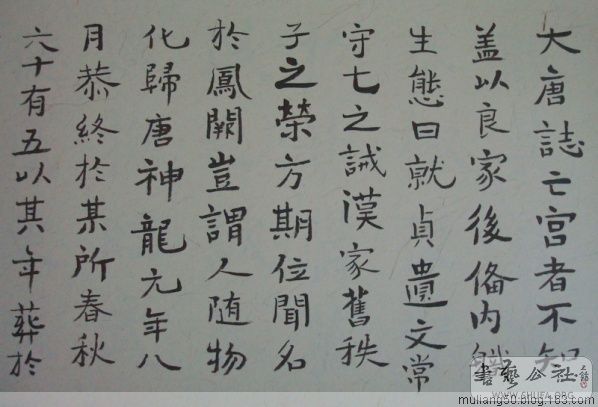 大唐誌亡宮者不知
盖以良家後俻内職
生態日就貞遺文常
守七之誡漢家舊秩
子之榮方期位聞名
於鳳闕豈謂人随物
化歸唐神龍元年八
月恭終於某所春秋
六十有五以其年葬於
書藝公社
WWW.SHUFA.ORG
muliang50.blog.163.com